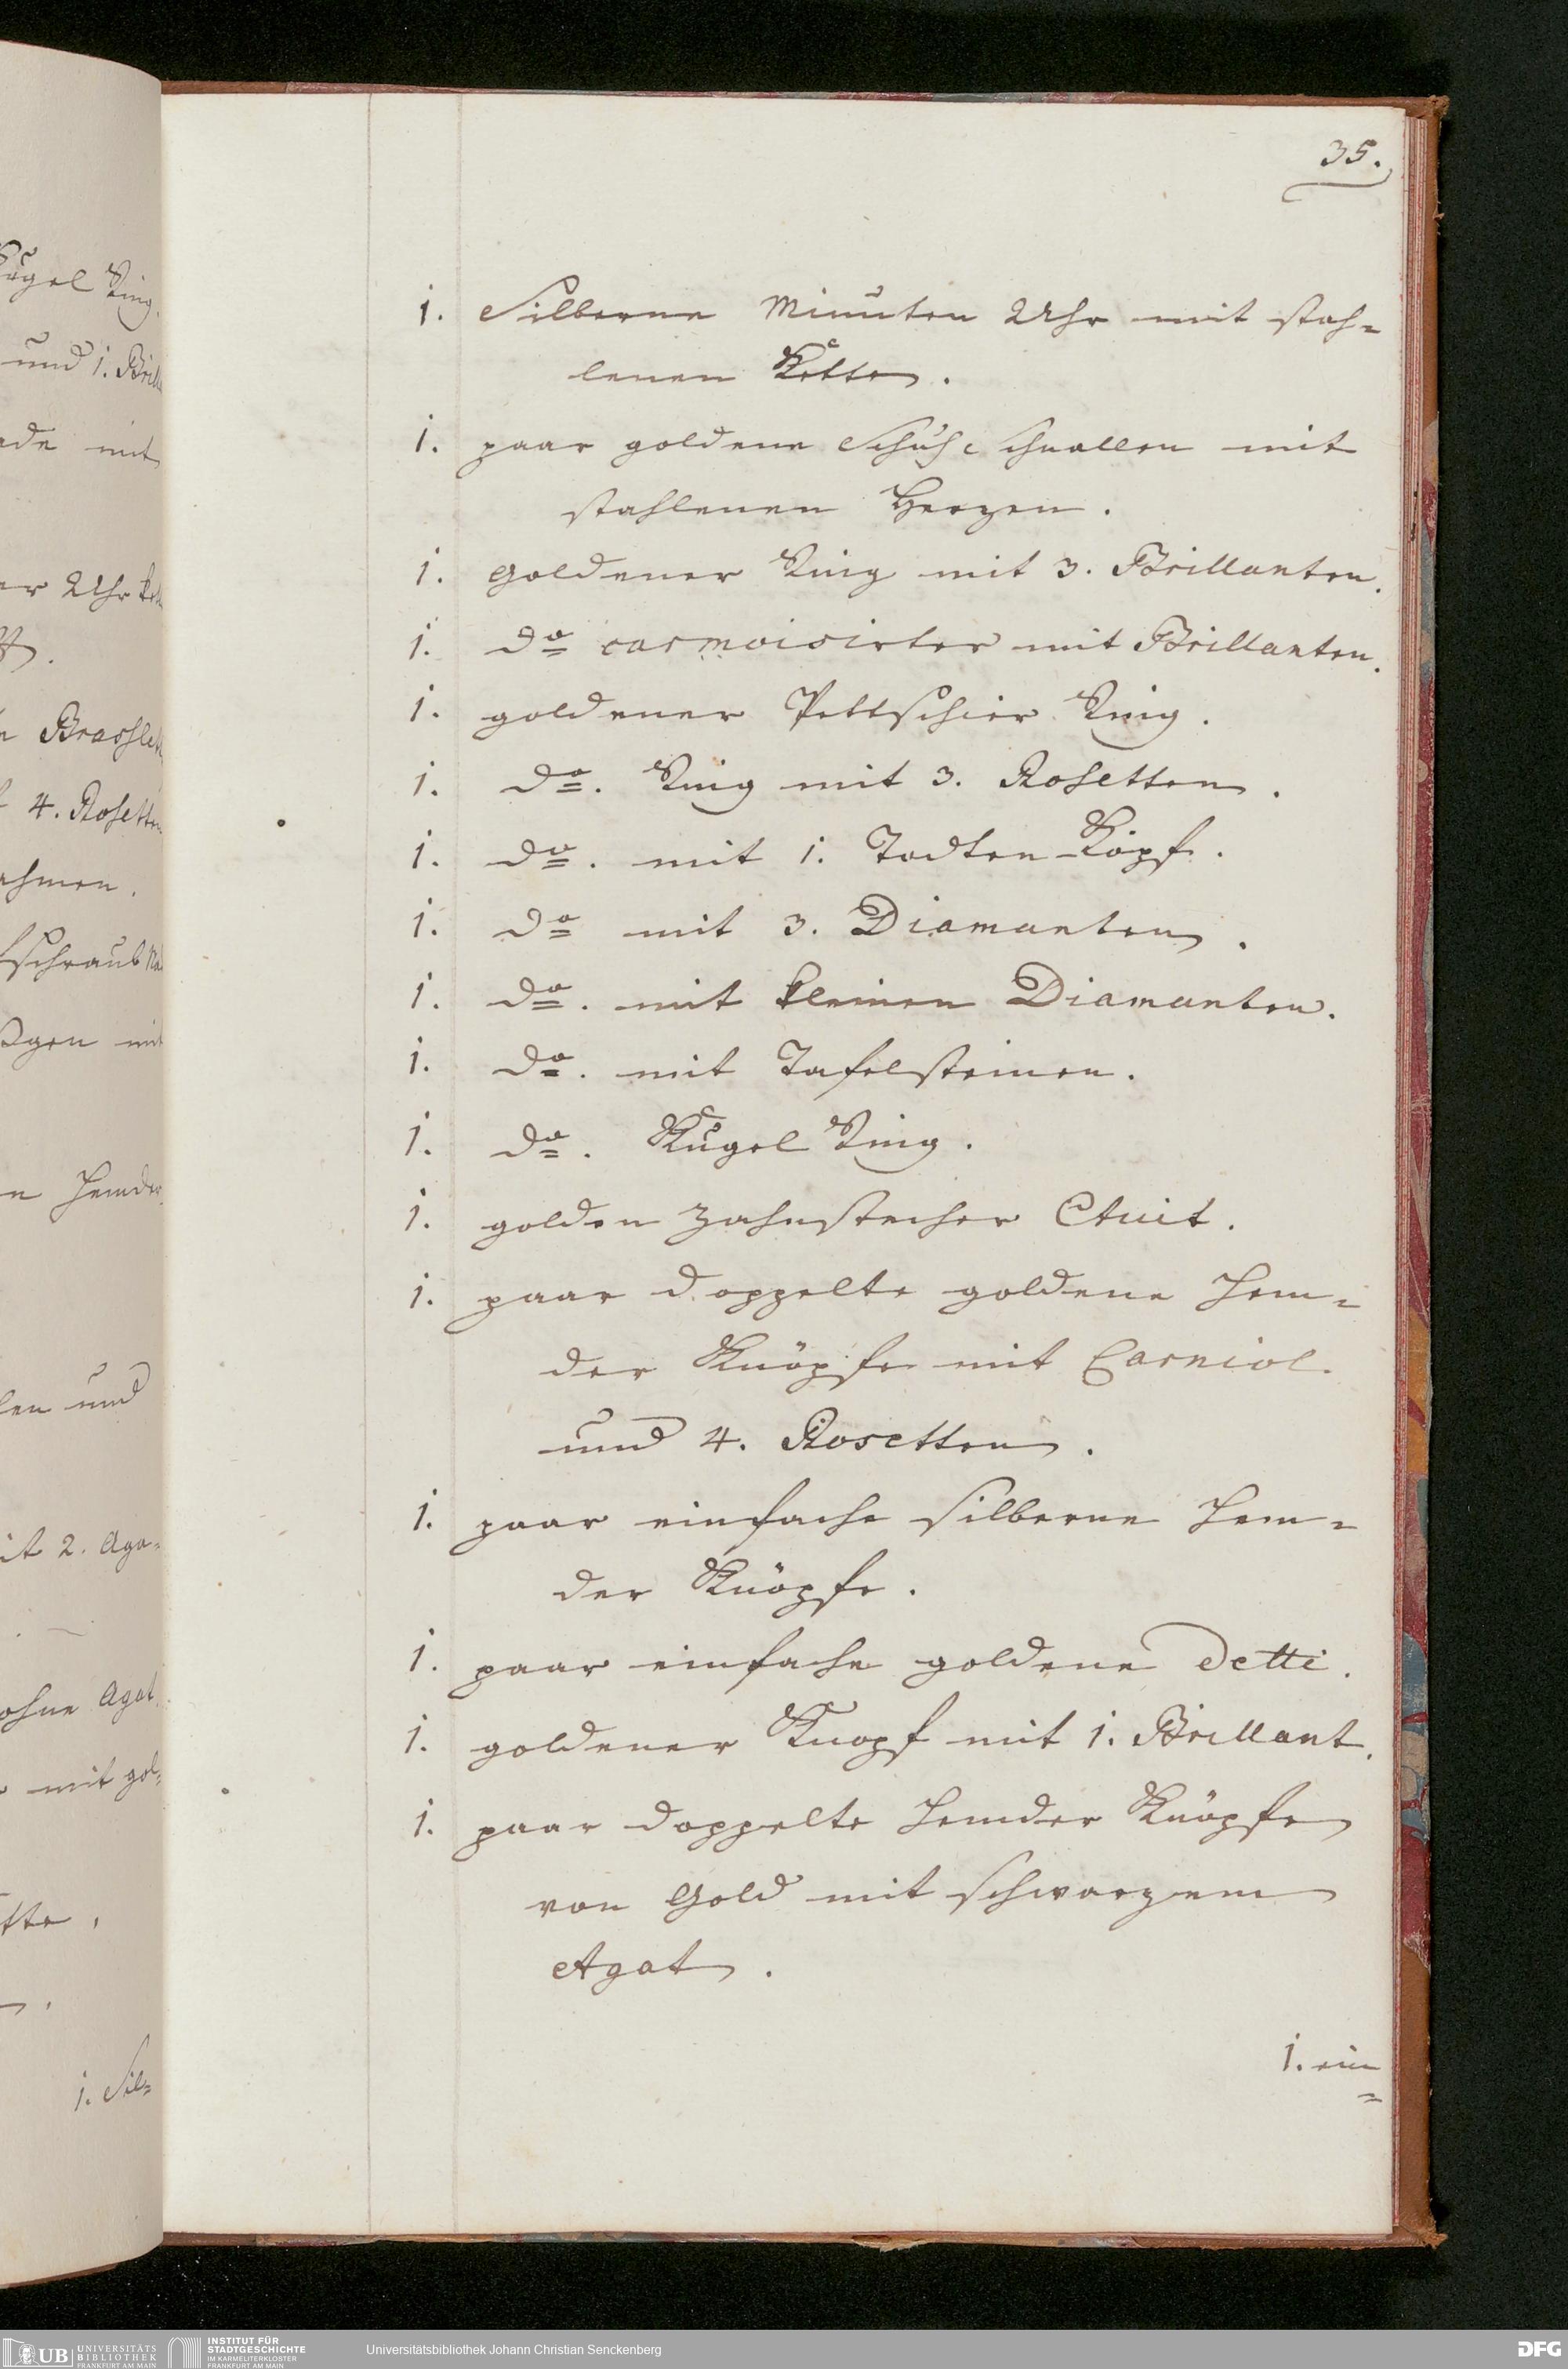 35.
1. Silberne Minuten Uhr mit stah=
lenen Kette.
1. paar goldene Schuh Schnallen mit
stahlenen Herzen.
1. Goldener Ring mit 3. Brillanten.
1. do carmoisirter mit Brillanten.
1. goldener Pettschier Ring.
1. do. Ring mit 3. Rosetten.
1. do. mit 1. Todten-Kopf.
1. do mit 3. Diamanten.
1. do. mit kleinen Diamanten.
1. do. mit Tafelsteinen.
1. do. Kugel Ring.
1. golden Zahnstecher Etuit.
1. paar doppelte goldene Hem=
der Knöpfe mit Carniol.
und 4. Rosetten.
1. paar einfache silberne Hem=
der Knöpfe.
1. paar einfache goldene detti.
1. goldener Knopf mit 1. Brillant.
1. paar doppelte Hemder Knöpfe
von Gold mit schwarzem
Agat.
1. ein
=
Kugel Ring.
und 1. Brill
mit
Uhr
Brasslet
4. Rosetten
schraub
mit
Hemder
und
2. Aga=
ohne Agat.
mit gol=
1. Sil=
UB UNIVERSITÄTS
BIBLIOTHEK
FRANKFURT AM MAIN
INSTITUT FÜR
STADTGESCHICHTE
IM KARMELITERKLOSTER
FRANKFURT AM MAIN
Universitätsbibliothek Johann Christian Senckenberg
DFG